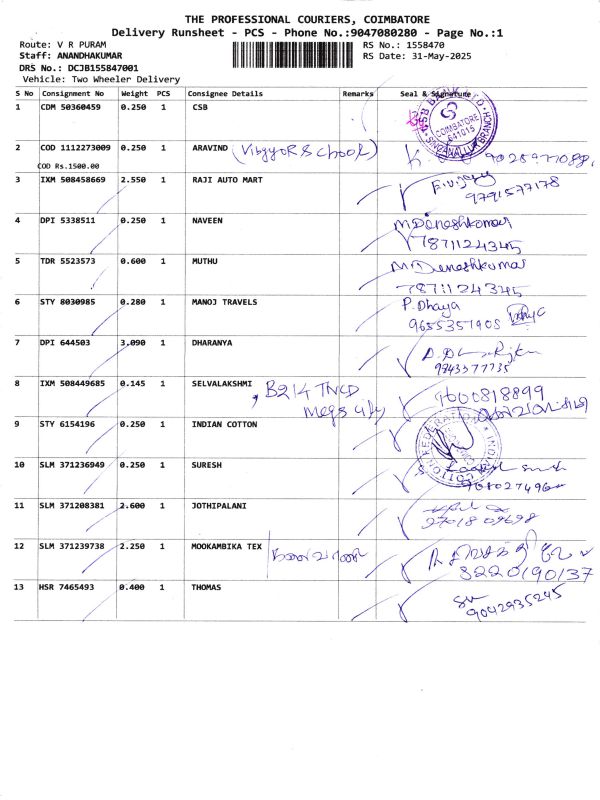 THE PROFESSIONAL COURIERS, COIMBATORE
Delivery Runsheet - PCS - Phone No.:9047080280 - Page No.:1
Route: V R PURAM RS No.: 1558470
Staff: ANANDHAKUMAR RS Date: 31-May-2025
DRS No.: DCJB155847001
Vehicle: Two Wheeler Delivery
S No Consignment No Weight PCS Consignee Details Remarks Seal & Signature
1 CDM 50360459 0.250 1 CSB
COIMBATORE
641015
SINGANALLUR BRANCH
2 COD 1112273009 0.250 1 ARAVIND (Vibgyor School)
COD Rs.1500.00
3 IXM 508458669 2.550 1 RAJI AUTO MART
9791577178
4 DPI 5338511 0.250 1 NAVEEN M Daneshkumar
7871124345
5 TDR 5523573 0.600 1 MUTHU M Daneshkumar
7871124345
6 STY 8030985 0.280 1 MANOJ TRAVELS P. Dhaya
9655357908
7 DPI 644503 3.090 1 DHARANYA
9843577735
8 IXM 508449685 0.145 1 SELVALAKSHMI B214 TNCD 1600818899
9 STY 6154196 0.250 1 INDIAN COTTON
10 SLM 371236949 0.250 1 SURESH
11 SLM 371208381 2.600 1 JOTHIPALANI
12 SLM 371239738 2.250 1 MOOKAMBIKA TEX
13 HSR 7465493 0.400 1 THOMAS
9042935245